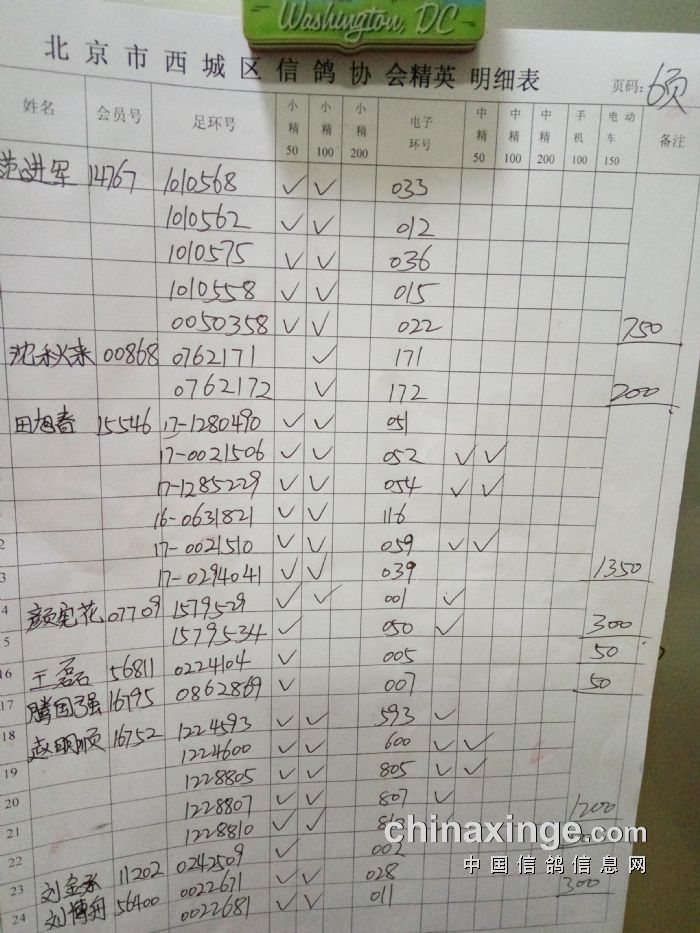 Washington, DC
北京市西城区信鸽协会精英 明细表
页码: 6页
姓名 会员号 足环号 小精50 小精100 小精200 电子环号 中精50 中精100 中精200 手机100 电动车150 备注
范进军 14767 1010568 ✓ ✓ 033
1010562 ✓ ✓ 012
1010575 ✓ ✓ 036
1010558 ✓ ✓ 015
0050358 ✓ ✓ 022 750
沈秋来 00868 0762171 ✓ 171
0762172 ✓ 172 200
田旭春 15546 17-1280490 ✓ ✓ 051
17-0021506 ✓ ✓ 052 ✓ ✓
17-1285229 ✓ ✓ 054 ✓ ✓
1 16-0631821 ✓ ✓ 116
2 17-0021510 ✓ ✓ 059 ✓ ✓
3 17-0294041 ✓ ✓ 039 1350
4 颜宪花 07709 1579529 ✓ ✓ 001 ✓
5 1579534 ✓ 050 ✓ 300
16 王磊 56811 0224104 ✓ 005 50
17 腾国强 16795 0862869 ✓ 007 50
18 赵明顺 16752 1224593 ✓ ✓ 593 ✓
1224600 ✓ ✓ 600 ✓ ✓
19 1228805 ✓ ✓ 805 ✓ ✓
20 1228807 ✓ ✓ 807 ✓
21 1228810 ✓ ✓ 1200
22 0242509 ✓ 002
23 刘 11202 0022671 ✓ ✓ 028
24 刘博舟 56400 0022681 ✓ ✓ 011 300
chinaxinge.com
中国信鸽信息网